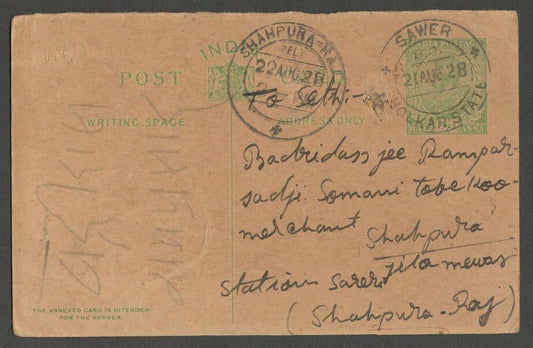 INDIA
POST CARD
WRITING SPACE
ADDRESS ONLY
SHAHPURA-RAJ
DEL
22 AUG. 28
SAWER
21 AUG. 28
HOLKAR STATE
INDIA POSTAGE
HALF ANNA
To Seth:-
Badridass jee Rampar-
sadji Somani Tobekoo-
merchant Shahpura
Station Sareri jila mewar
(Shahpura-Raj)
THE ANNEXED CARD IS INTENDED
FOR THE ANSWER.